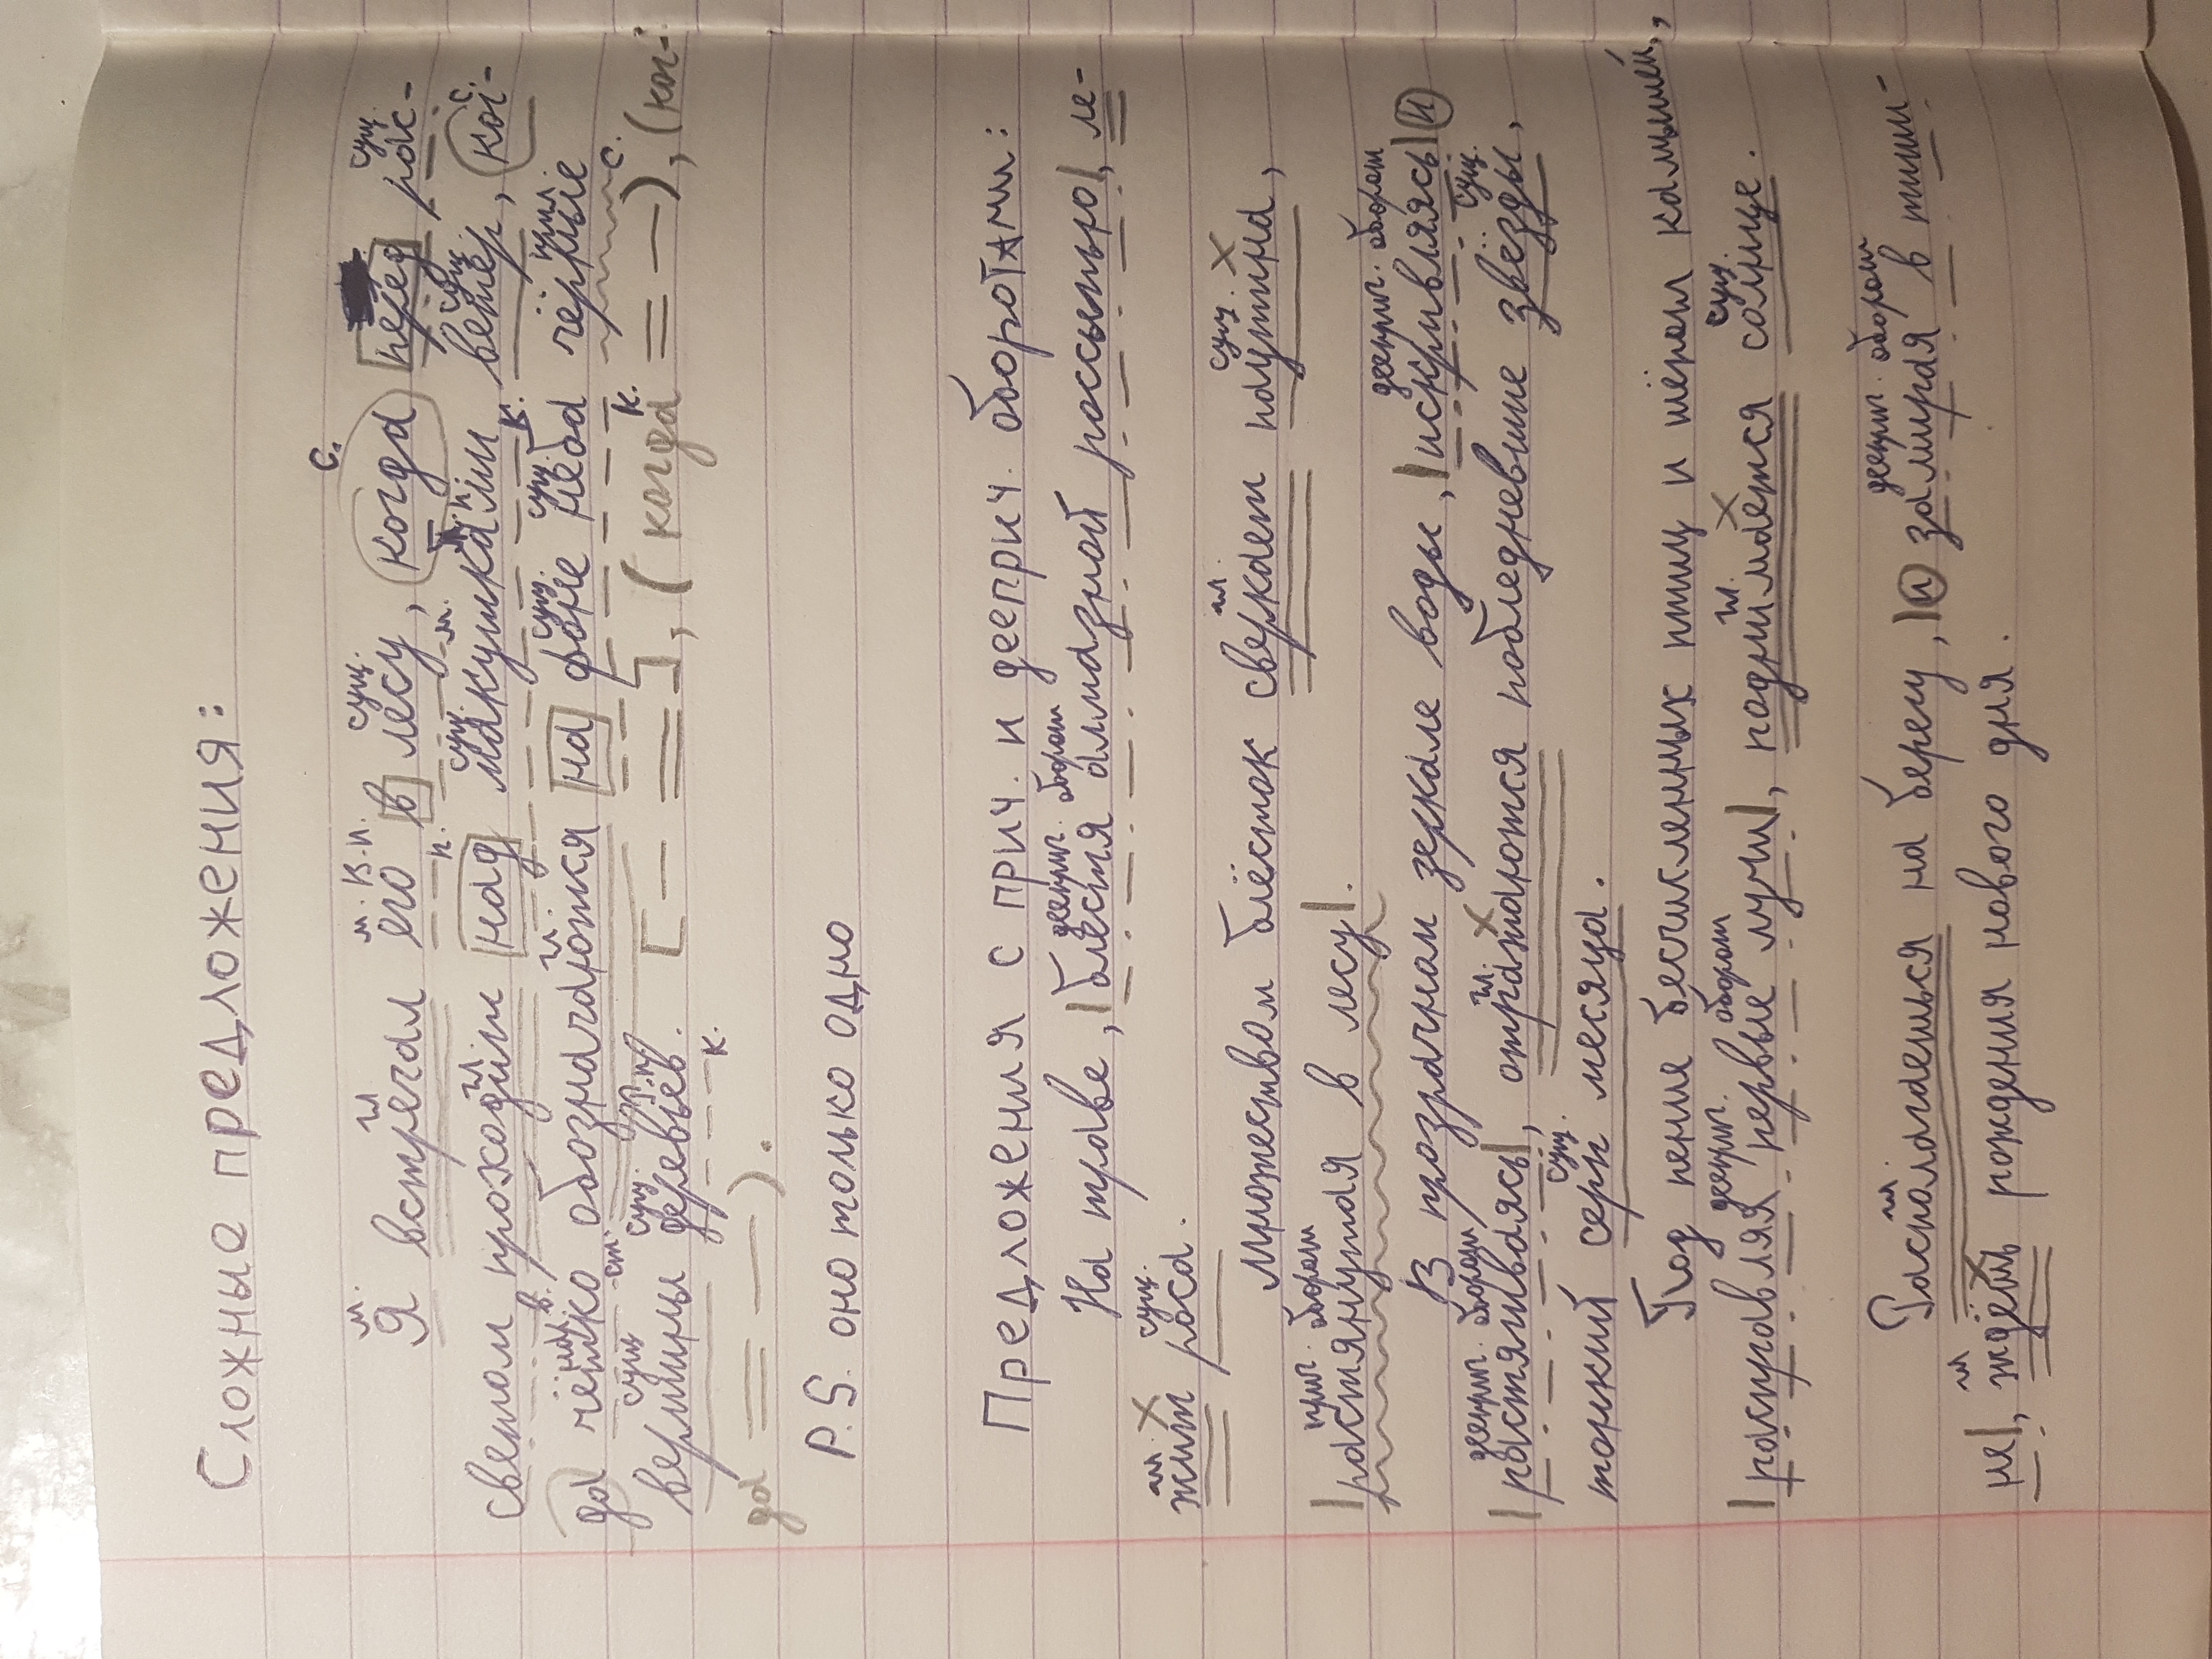 Сложные предложения:
Я встречал его в лесу, когда перед рас-
светом проходил над макушками ветер, ког-
да чётко обозначаются на фоне неба чёрные
вершины деревьев. [-- =], (когда = —), (ког-
да = —).
P.S. оно только одно
Предложения с прич. и дееприч. оборотами:
На траве, |блестя алмазной россыпью|, ле-
жит роса.
Множеством блёсток сверкает паутина,
|растянутая в лесу|.
В прозрачном зеркале воды, |искривляясь| и
|растягиваясь|, отражаются побледневшие звёзды,
тонкий серп месяца.
Под пение бесчисленных птиц и шёрох камышей,
|расправляя первые лучи|, поднимается солнце.
Располагаешься на берегу, |и замирая в тиши-
не|, ждёшь рождения нового дня.